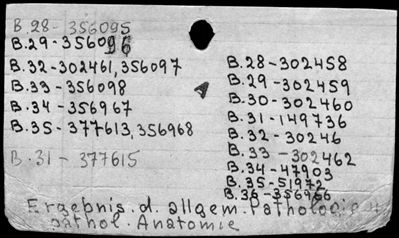 B.28- 356095
B.29-356096
B.32-302461,356097
B.33-356098
B.34-356967
B.35-377613,356968
B.31-377615
B.28-302458
B.29-302459
B.30-302460
B.31-149736
B.32-30246
B.33-302462
B.34-47903
B.35-51972
B.36-356966
Ergebnis.d.allgem.Pathologie u
pathol. Anatomie